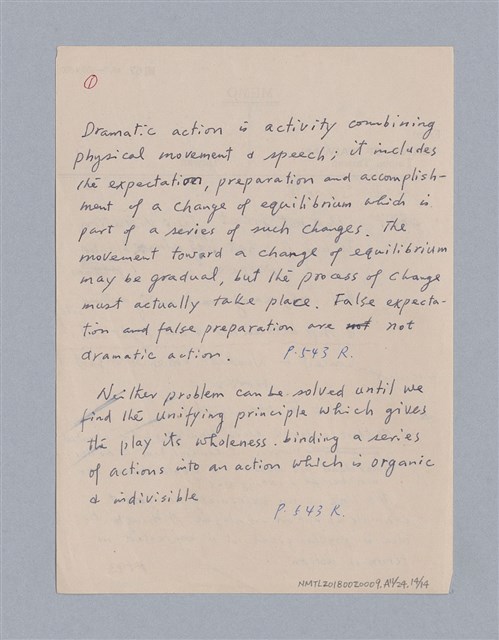 1
Dramatic action is activity combining
physical movement & speech; it includes
the expectation, preparation and accomplish-
ment of a change of equilibrium which is
part of a series of such changes. The
movement toward a change of equilibrium
may be gradual, but the process of change
must actually take place. False expecta-
tion and false preparation are not not
dramatic action. P.543 R.
Neither problem can be solved until we
find the unifying principle which gives
the play its wholeness. binding a series
of actions into an action which is organic
& indivisible
P. 543 R.
NMTL20180020009.A14/24.14/14